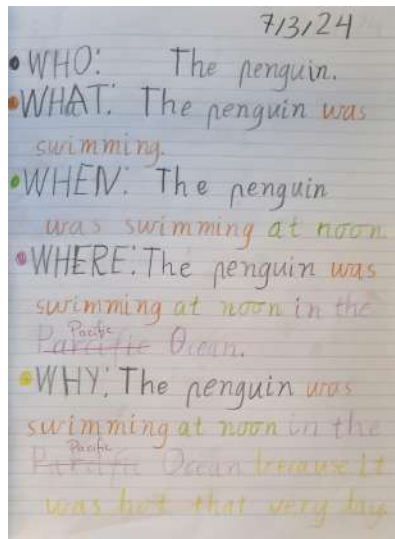 7/3/24
WHO: The penguin.
WHAT: The penguin was
swimming.
WHEN: The penguin
was swimming at noon
WHERE: The penguin was
swimming at noon in the
Parcific Pacific Ocean.
WHY: The penguin was
swimming at noon in the
Parcific Pacific Ocean because it
was hot that very day